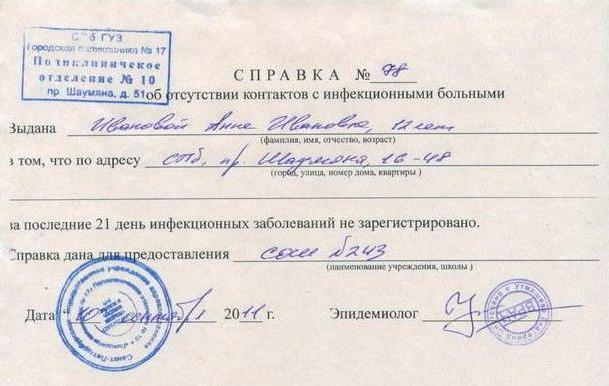 СПб ГУЗ
Городская поликлиника № 17
Поликлиническое
отделение № 10
пр Шаумяна, д. 51
СПРАВКА № 78
об отсутствии контактов с инфекционными больными
Выдана Ивановой Анне Ивановне, 12 лет
(фамилия, имя, отчество, возраст)
в том, что по адресу СПб, пр. Шаумяна, 16-48
(город, улица, номер дома, квартиры )
за последние 21 день инфекционных заболеваний не зарегистрировано.
Справка дана для предоставления сош 6243
(наименование учреждения, школы )
Дата 10 сентября 2011 г. Эпидемиолог
ВРАЧ